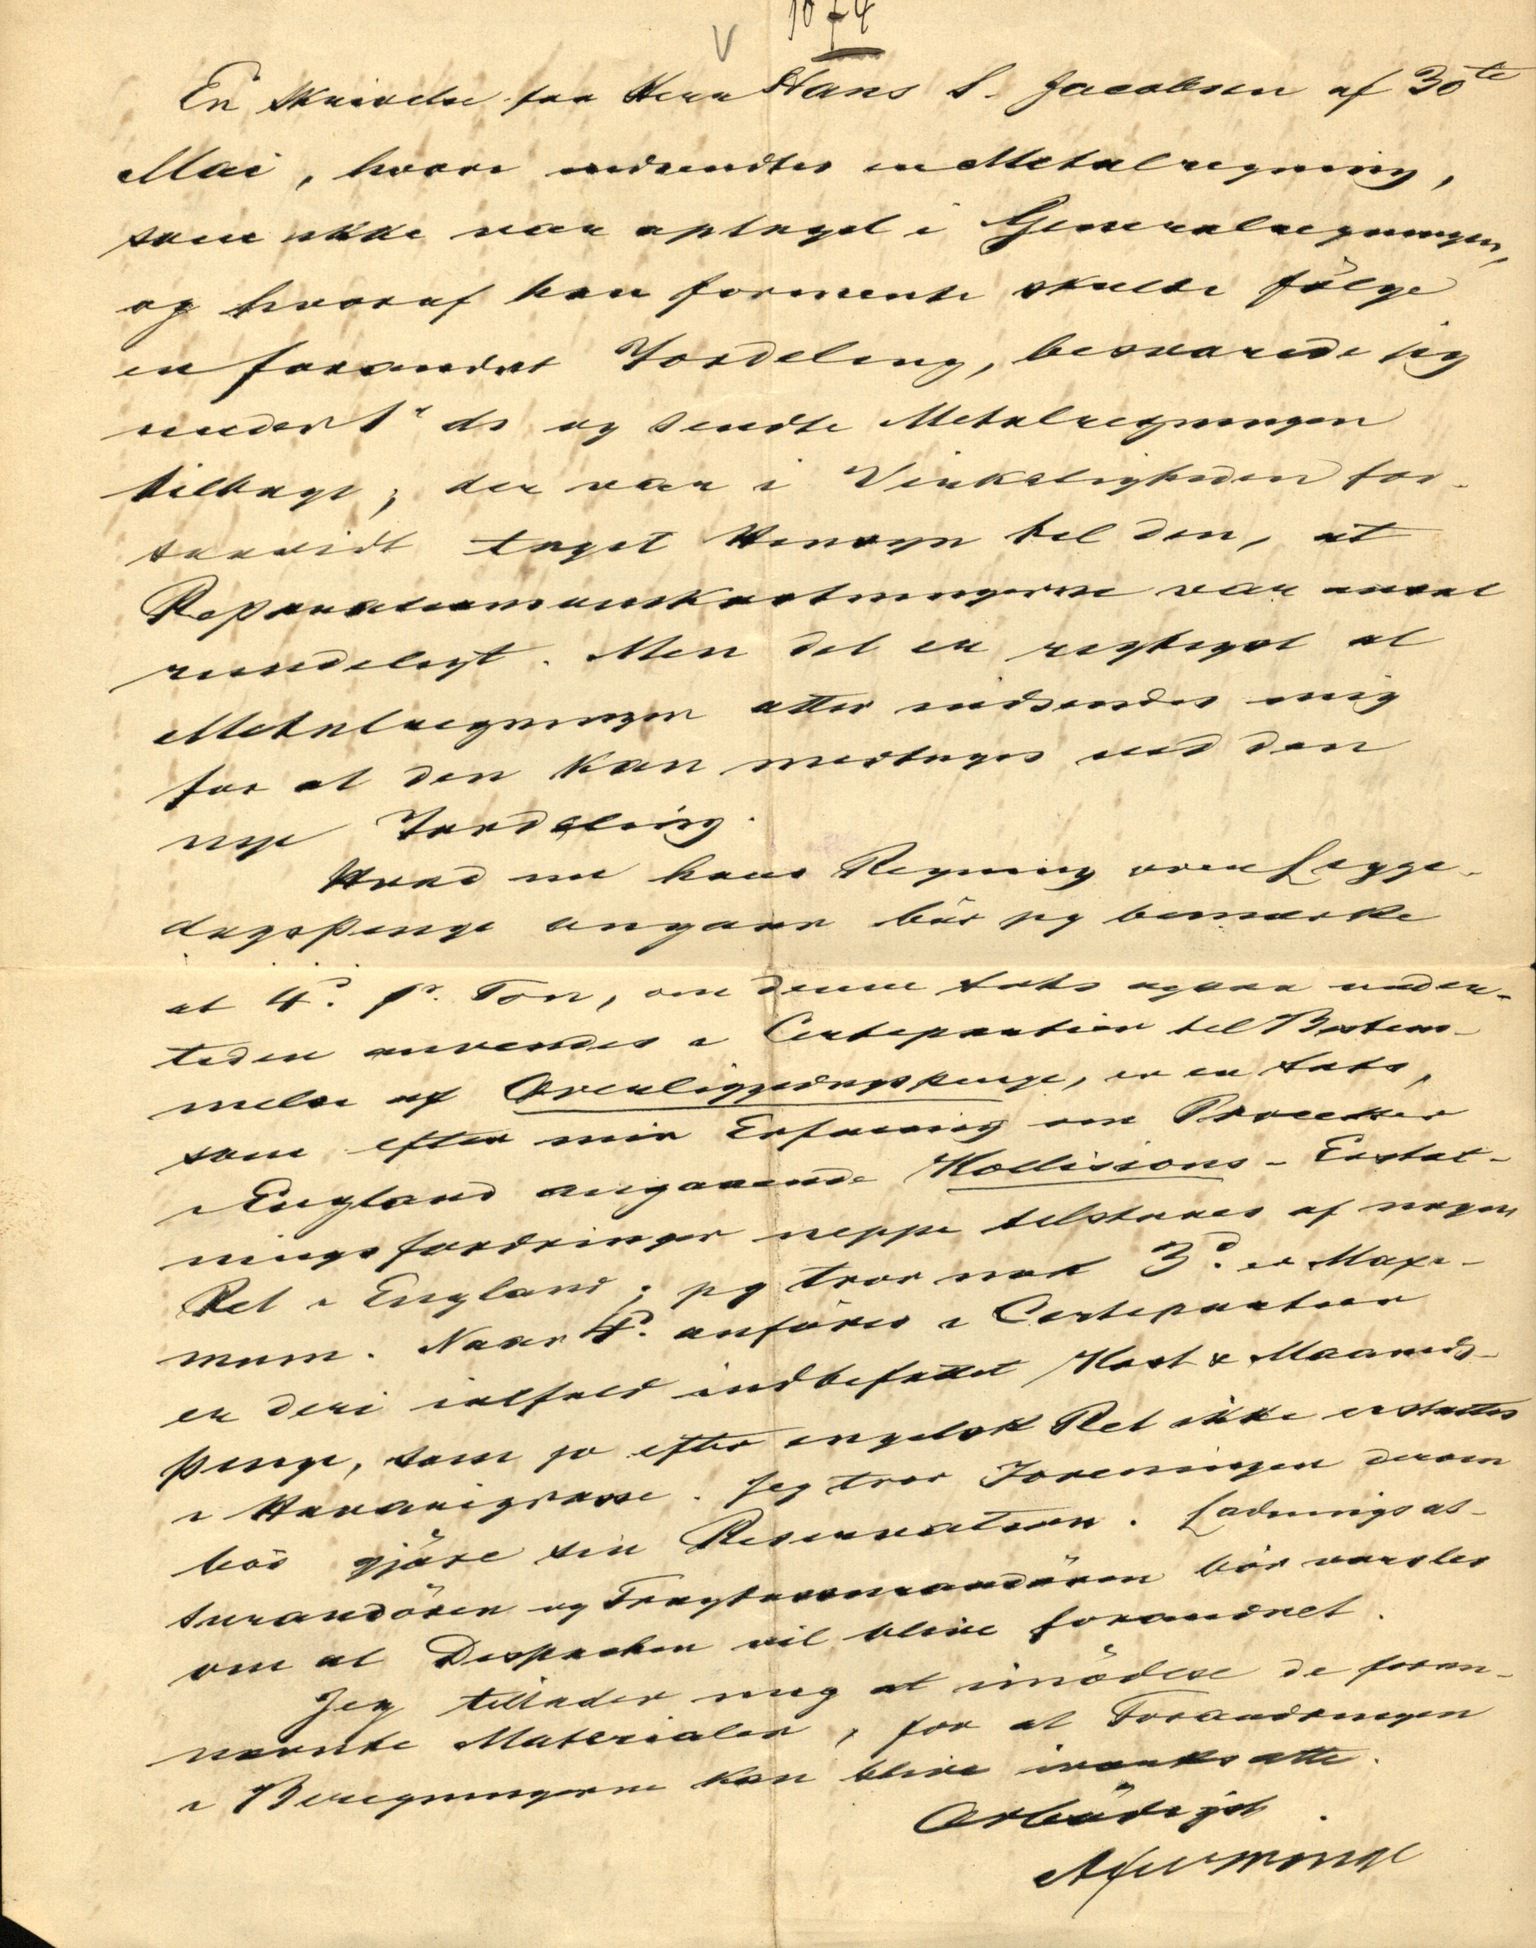 1874
En Skrivelse fra Herr Hans S. Jacobsen af 30te
Mai, hvori indsendtes en Metalregning,
som ikke var optaget i Generalregningen,
og hvoraf han formente skulde fölge
en forandret Fordeling, besvarede jeg
under 1' ds og sendte Metalregningen
tilbage; der var i Virkeligheden for-
saavidt taget Hensyn til den, at
Reparationsomkostningerne var ansat
rundeligt. Men det er rigtigst at
Metalregningen atter indsendes mig
for at den kan medtages ved den
nye Fordeling.
Hvad nu hans Regning over Ligge-
dagspenge angaar bör jeg bemærke
at 4d. pr. Ton, om denne Sats ogsaa under-
tiden anvendes i Certepartier til Bestem-
melse af Overliggedagspenge, er en Sats,
som efter min Erfaring om Processer
i England angaaende Kollisions-Erstat-
ningsfordringer neppe tilstaaes af nogen
Ret i England; jeg tror nok 3d. er Maxi-
mum. Naar 4d. anföres i Certepartier
er deri ialfald indbefattet Kost & Maaneds-
penge, som jo efter engelsk Ret ikke erstattes
i Havarigrosse. Jeg tror Foreningen derom
bör gjöre sin Reservation. Ladningsas-
surandören og Fragtassurandören bör varsles
om at Dispachen vil blive forandret.
Jeg tillader mig at imödese de foran-
nævnte Materialer, for at Forandringen
i Beregningerne kan blive iværksatte.
Ærbödigst